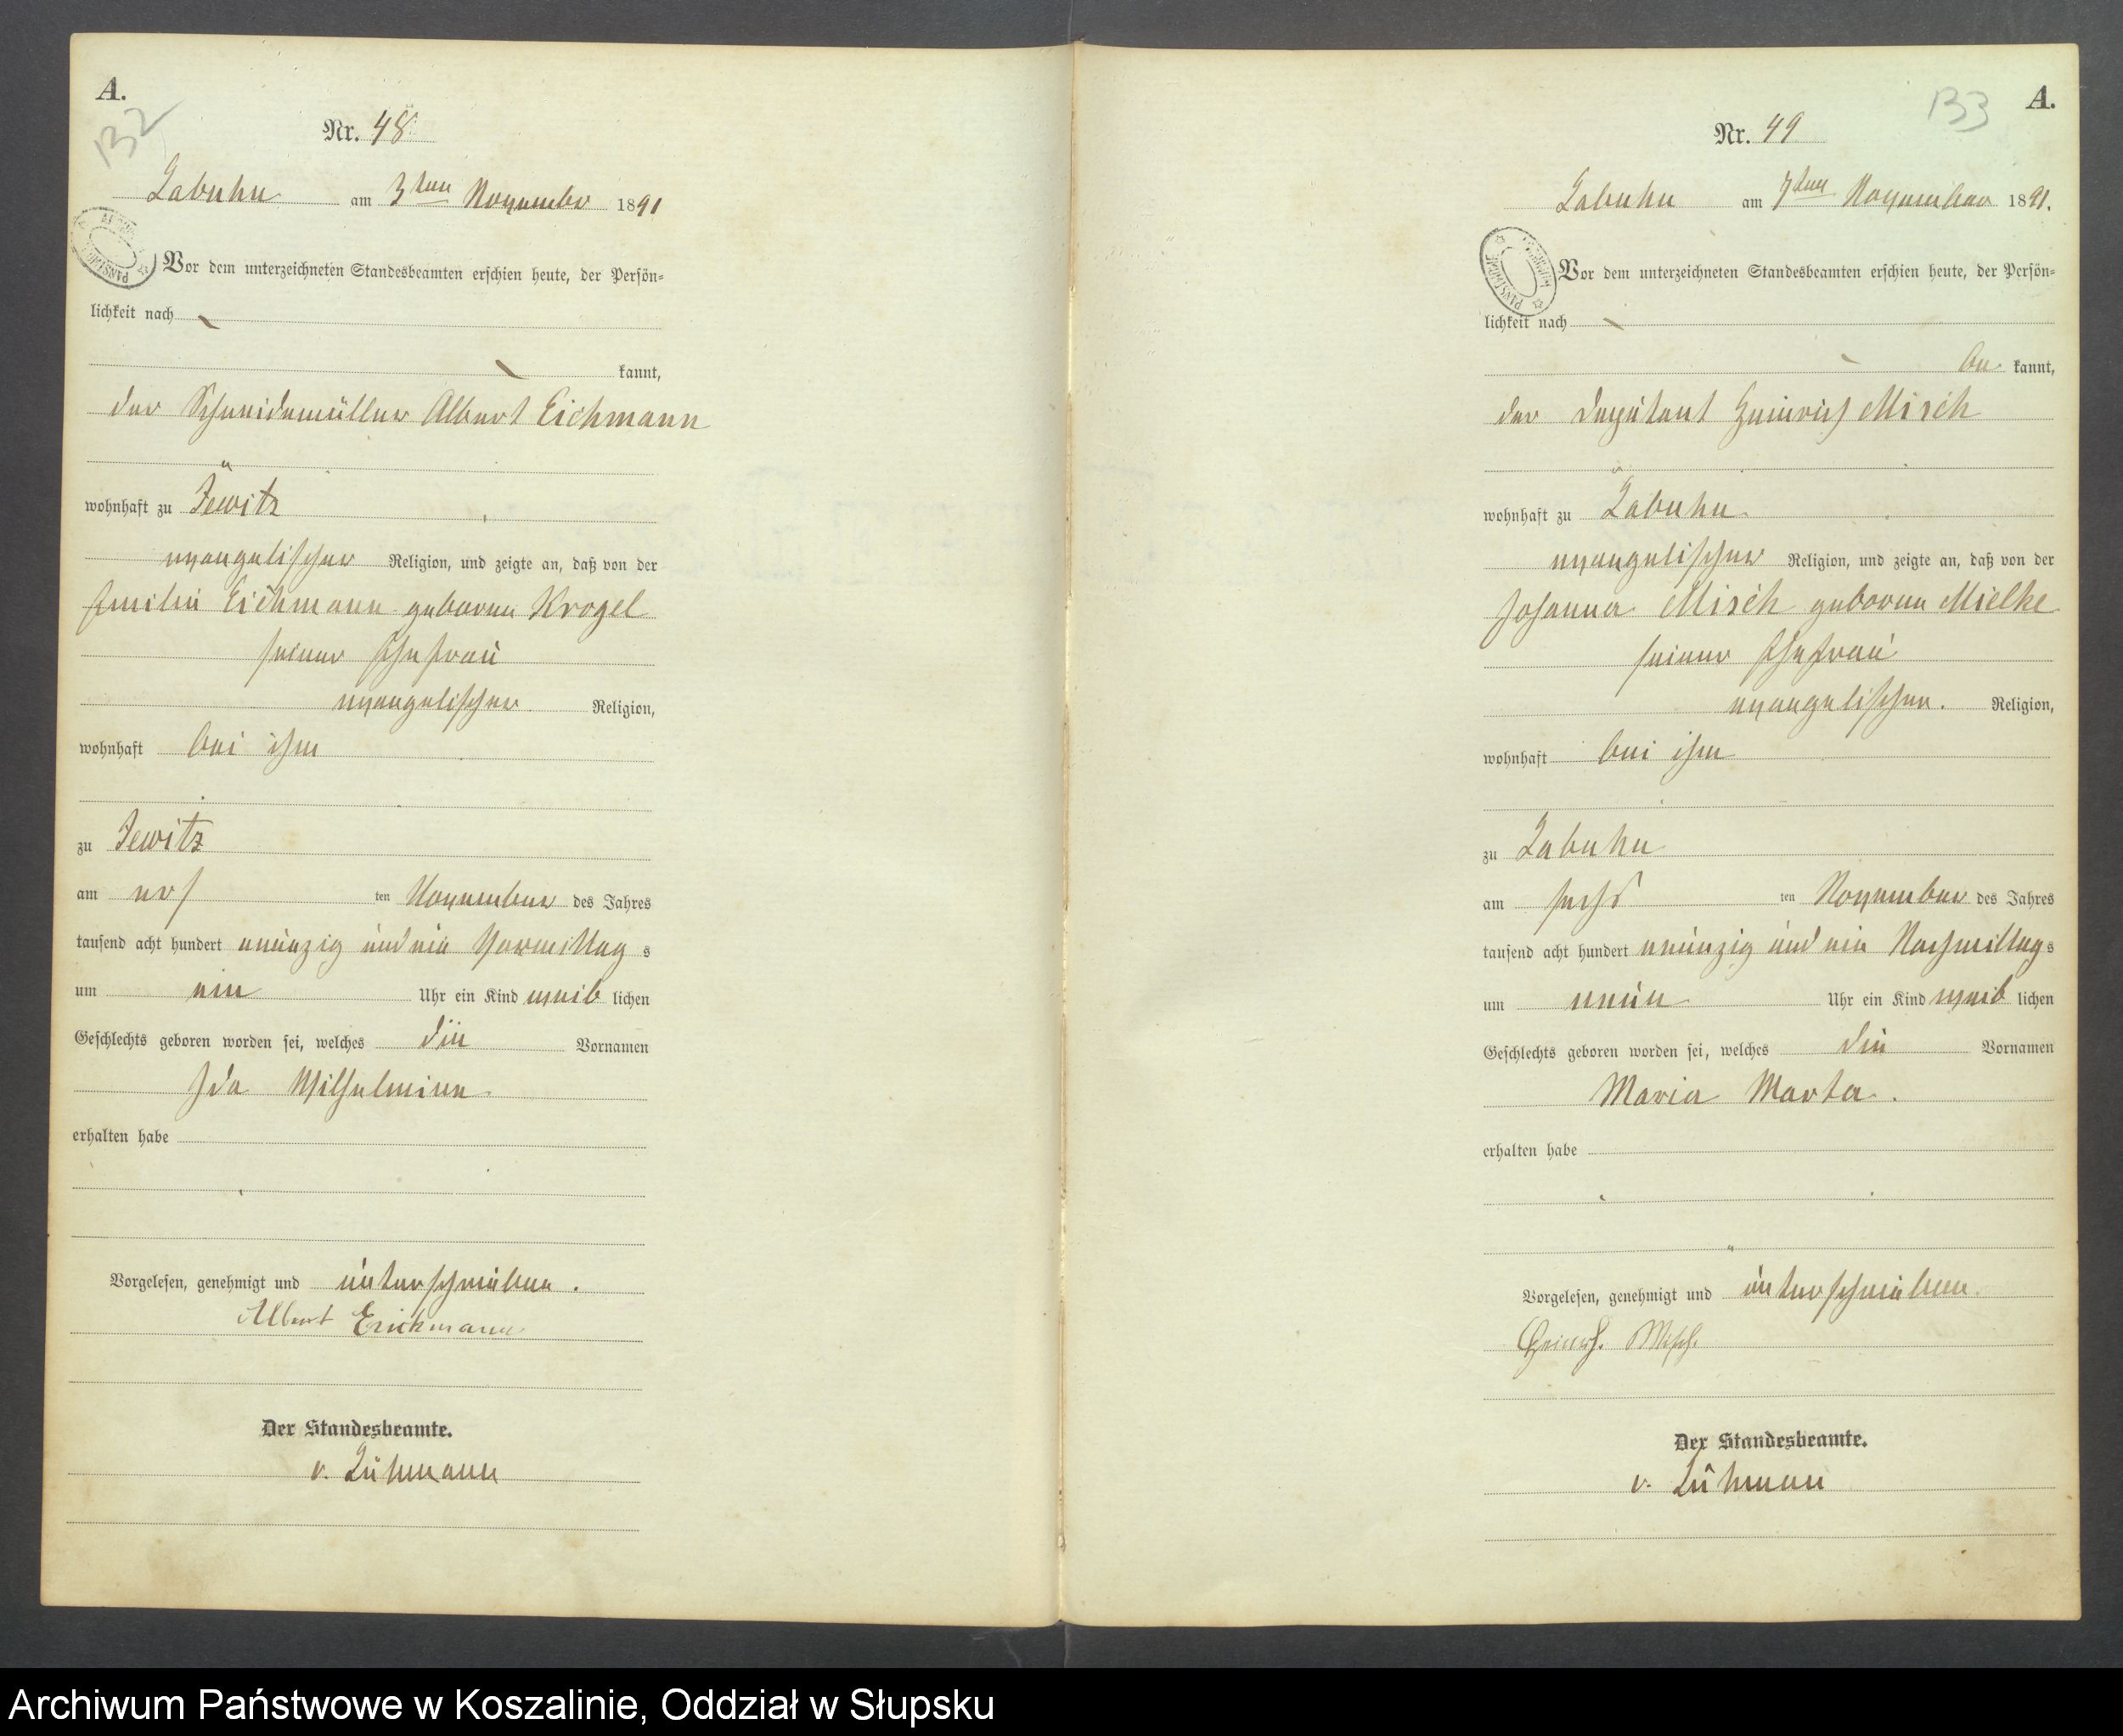 A.
132
Nr. 48
Labuhn am 3ten November 1891
Vor dem unterzeichneten Standesbeamten erschien heute, der Persön-
lichkeit nach
kannt,
der Schneidemüller Albert Eichmann
wohnhaft zu Jewitz
evangelischer Religion, und zeigte an, daß von der
Emilie Eichmann geborene Krogel
seiner Ehefrau
evangelischer Religion,
wohnhaft bei ihm
zu Jewitz
am ten November des Jahres
tausend acht hundert neunzig und ein Vormittag s
um ein Uhr ein Kind weib lichen
Geschlechts geboren worden sei, welches die Vornamen
Ida Wilhelmine
erhalten habe
Vorgelesen, genehmigt und unterschrieben.
Albert Eichmann
Der Standesbeamte.
v. Lühmann
A.
133
Nr. 49
Labuhn am 7ten November 1891.
Vor dem unterzeichneten Standesbeamten erschien heute, der Persön-
lichkeit nach
be kannt,
der Deputant Heinrich Misch
wohnhaft zu Labuhn
evangelischer Religion, und zeigte an, daß von der
Johanna Misch geborene Mielke
seiner Ehefrau
evangelischer Religion,
wohnhaft bei ihm
zu Labuhn
am sechs ten November des Jahres
tausend acht hundert neunzig und ein Nachmittag s
um neun Uhr ein Kind weib lichen
Geschlechts geboren worden sei, welches die Vornamen
Maria Marta.
erhalten habe
Vorgelesen, genehmigt und unterschrieben.
Heinrich Misch
Der Standesbeamte.
v. Lühmann
Archiwum Państwowe w Koszalinie, Oddział w Słupsku